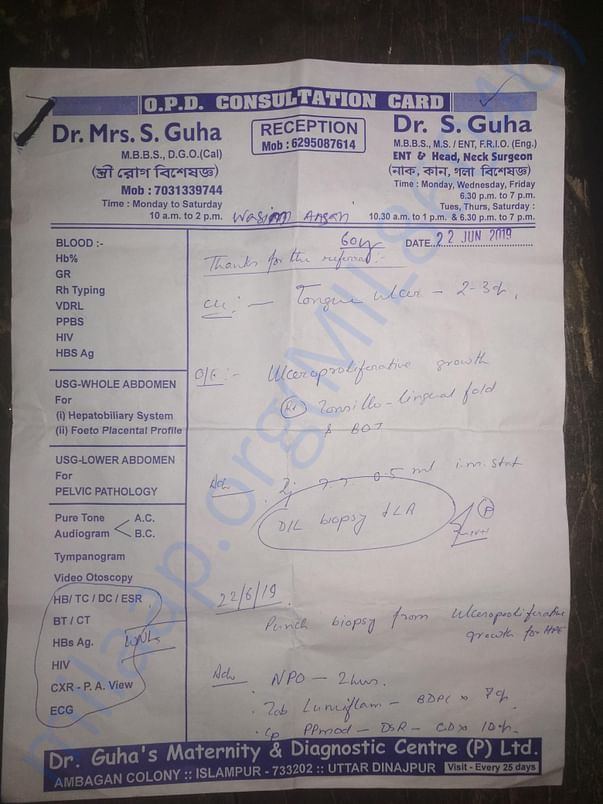 O.P.D. CONSULTATION CARD
Dr. Mrs. S. Guha
M.B.B.S., D.G.O.(Cal)
(স্ত্রী রোগ বিশেষজ্ঞ)
Mob : 7031339744
Time : Monday to Saturday
10 a.m. to 2 p.m.
RECEPTION
Mob : 6295087614
Dr. S. Guha
M.B.B.S., M.S. / ENT, F.R.I.O. (Eng.)
ENT & Head, Neck Surgeon
(নাক, কান, গলা বিশেষজ্ঞ)
Time : Monday, Wednesday, Friday
6.30 p.m. to 7 p.m.
Tues, Thurs, Saturday :
10.30 a.m. to 1 p.m. & 6.30 p.m. to 7 p.m.
Wasim Ansari
60y
DATE 22 JUN 2019
BLOOD :-
Hb%
GR
Rh Typing
VDRL
PPBS
HIV
HBS Ag
USG-WHOLE ABDOMEN
For
(i) Hepatobiliary System
(ii) Foeto Placental Profile
USG-LOWER ABDOMEN
For
PELVIC PATHOLOGY
Pure Tone A.C.
Audiogram B.C.
Tympanogram
Video Otoscopy
HB/ TC / DC / ESR
BT / CT
HBs Ag.
HIV
CXR - P. A. View
ECG
WNL
Thanks for the referral :-
Tongue ulcer - 2-3
O/E :- Ulceroproliferative growth
Rt Tonsillo-lingual fold
& BOT
Adv Inj T.T 0.5 ml i.m. stat
D/L biopsy ↓LA
22/6/19
Punch biopsy from Ulceroproliferative
growth for HPE
Adv NPO - 2 hrs.
Tab Lumiflam - BDPC x 7
Cp PPmod - DSR - OD x 10
Dr. Guha's Maternity & Diagnostic Centre (P) Ltd.
AMBAGAN COLONY :: ISLAMPUR - 733202 :: UTTAR DINAJPUR
Visit - Every 25 days